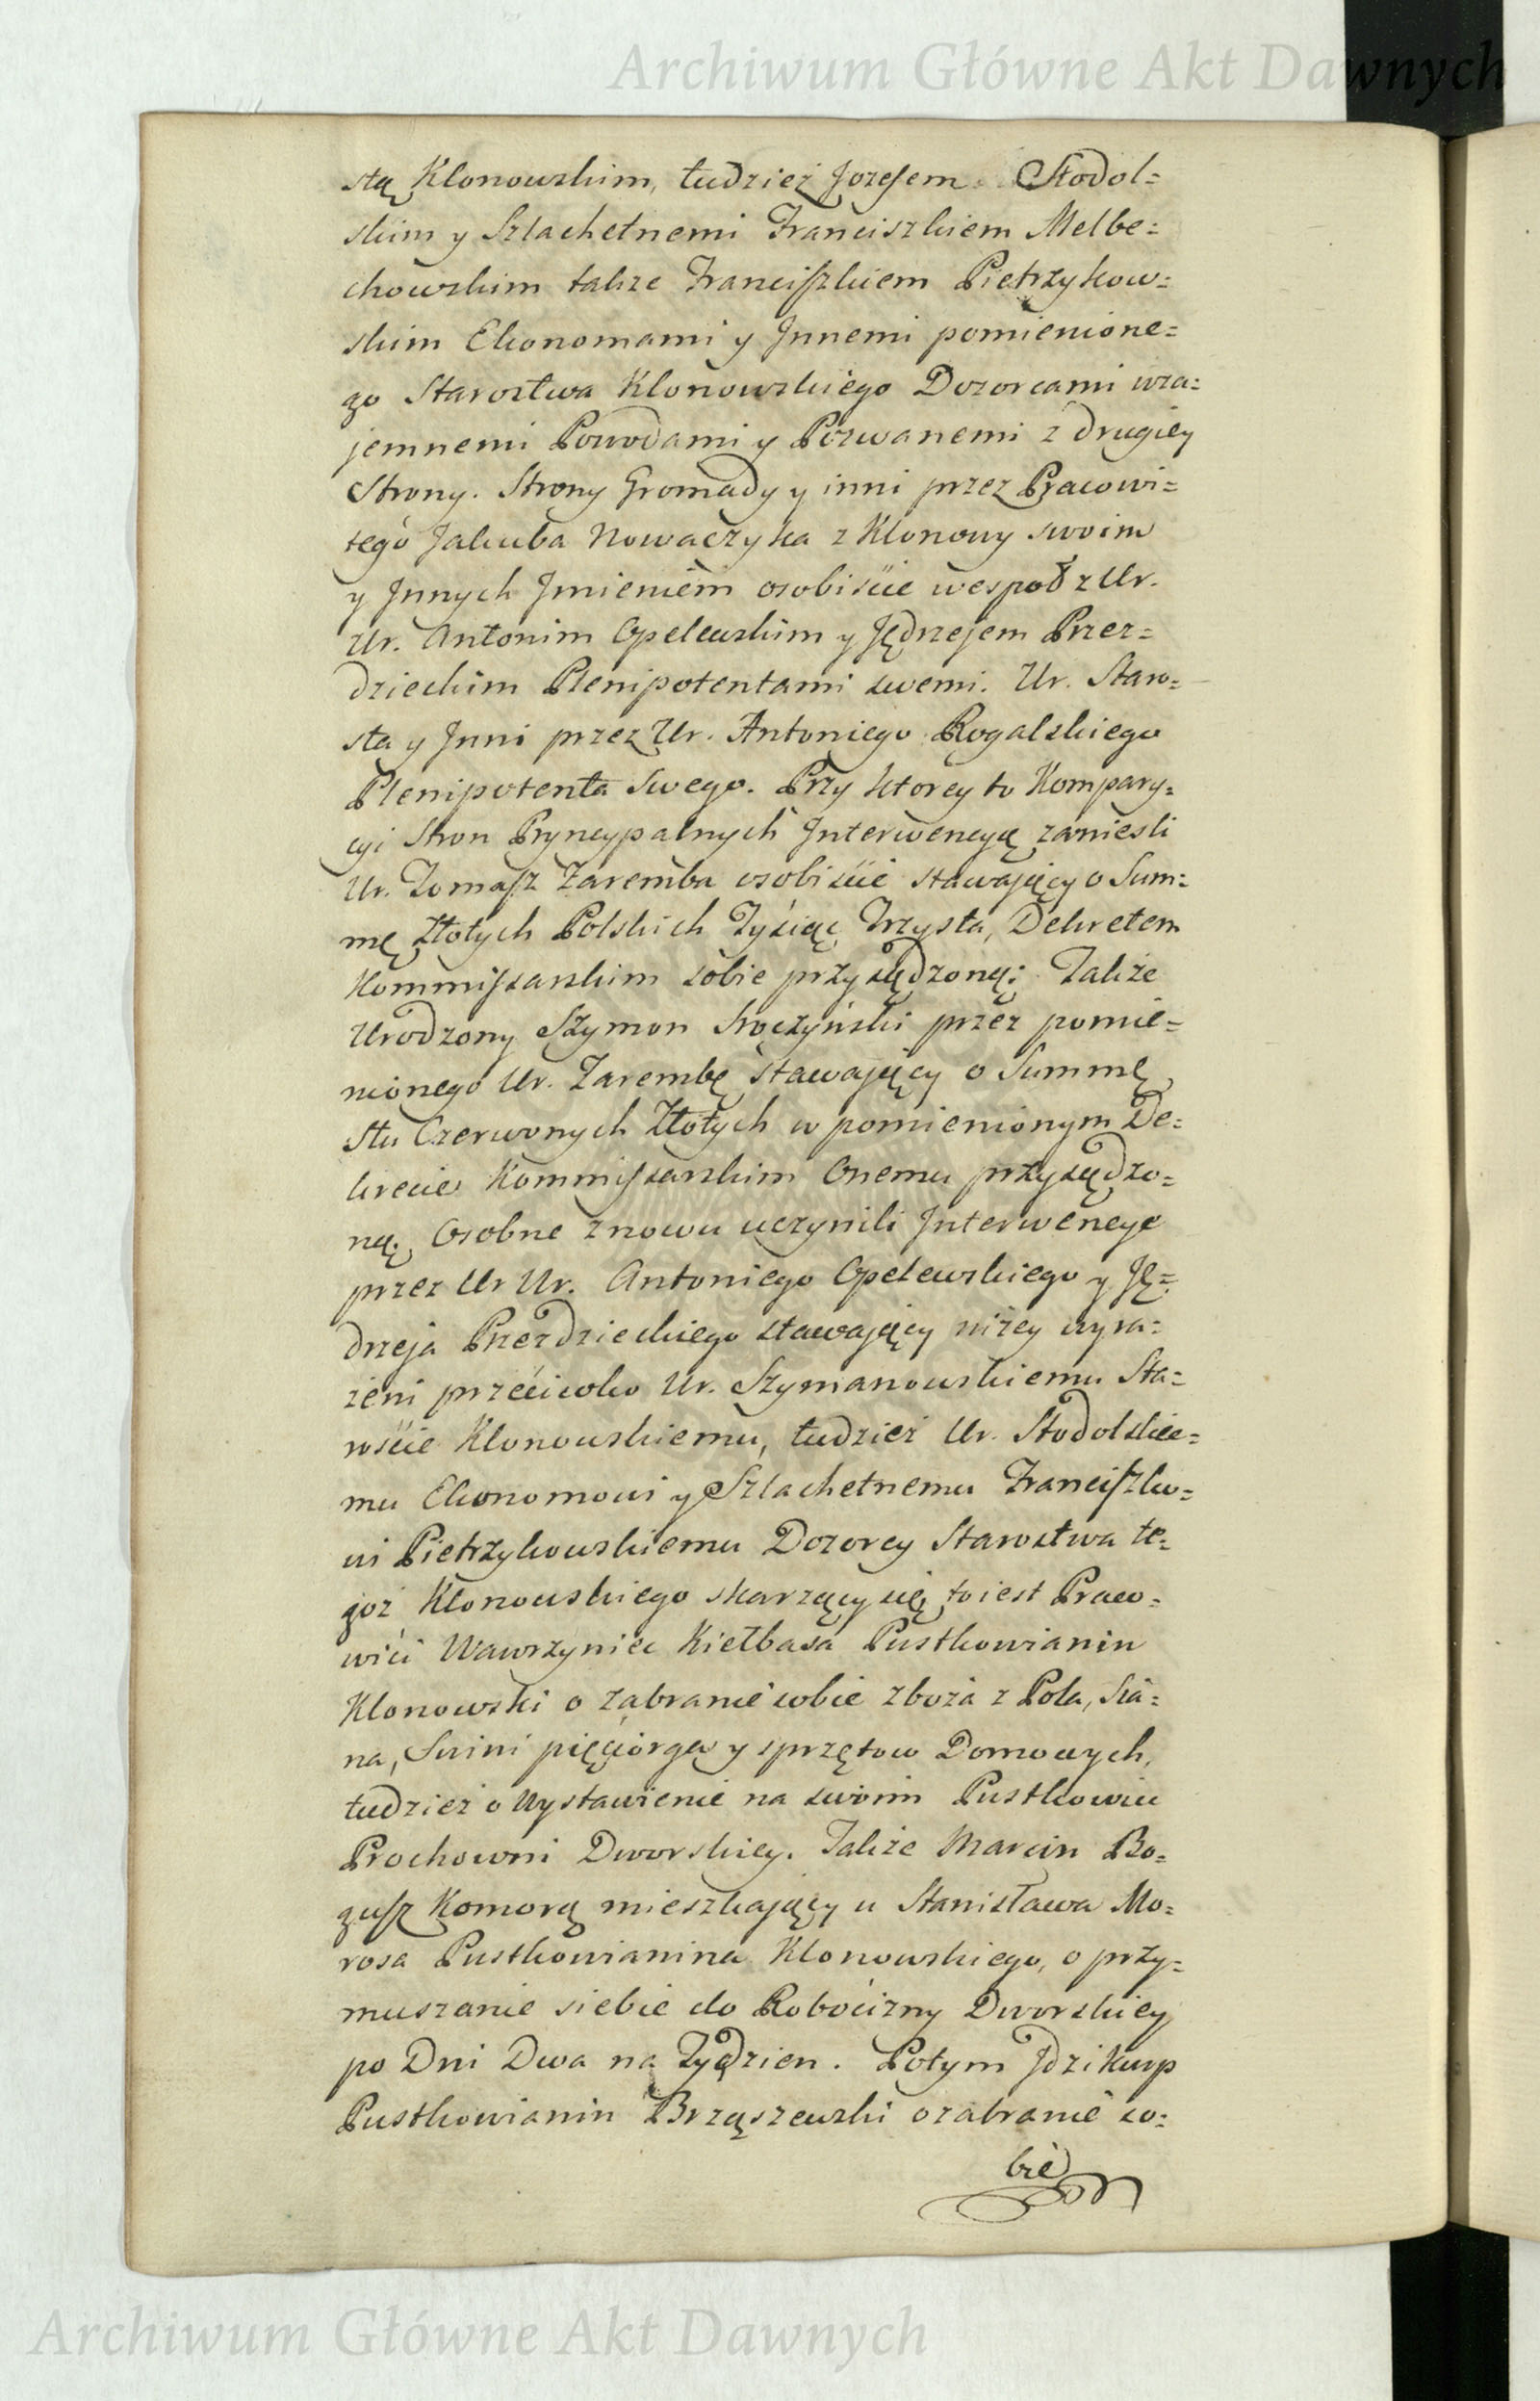 Archiwum Główne Akt Dawnych
stą Klonowskim, tudzież Jozefem Stodol=
skim y Szlachetnemi Franciszkiem Melbe=
chowskim także Franciszkiem Pietrzykow=
skim Ekonomami y Jnnemi pomienione=
go Starostwa Klonowskiego Dozorcami wza=
jemnemi Powodami y Pozwanemi z drugiey
Strony. Strony Gromady y inni przez Pracowi=
tego Jakuba Nowaczyka z Klonowy swoim
y Jnnych Jmieniem osobiście wespoł z Ur.
Ur. Antonim Opelewskim y Jędrzejem Przez=
dzieckim Plenipotentami swemi. Ur. Staro=
sta y Jnni przez Ur. Antoniego Rogalskiego
Plenipotenta Swego. Przy ktorey to Kompary=
cyi Stron Pryncypalnych Jnterwencyą zanieśli
Ur. Tomasz Zaremba osobiście stawający o Sum=
mę Złotych Polskich Tysiąc Trzysta, Dekretem
Kommissarskim sobie przysądzoną: Także
Urodzony Szymon Stoczyński przez pomie=
nionego Ur. Zarembę stawający o Summę
Stu Czerwonych Złotych w pomienionym De=
krecie Kommissarskim Onemu przysądzo=
ną. Osobne znowu uczynili Jnterwencye
przez Ur Ur. Antoniego Opelewskiego y Ję=
drzeja Przezdzieckiego stawający niżey wyra=
żeni przeciwko Ur. Szymanowskiemu Sta=
roście Klonowskiemu, tudzież Ur. Stodolskie=
mu Ekonomowi y Szlachetnemu Franciszko=
wi Pietrzykowskiemu Dozorcy Starostwa te=
goż Klonowskiego skarzący się to iest Praco=
wici Wawrzyniec Kiełbasa Pustkowianin
Klonowski o zabranie sobie zboża z Pola, Sia=
na, Swini pięciorga y sprzętow Domowych,
tudzież o Wystawienie na swoim Pustkowiu
Prochowni Dworskiey. Także Marcin Bo=
gusz Komorą mieszkający u Stanisława Mo=
rosa Pustkowianina Klonowskiego, o przy=
muszanie siebie do Robocizny Dworskiey
po Dni Dwa na Tydzien. Potym Jdzi Kurp
Pustkowianin Brząszewski o zabranie so=
bie
Archiwum Główne Akt Dawnych